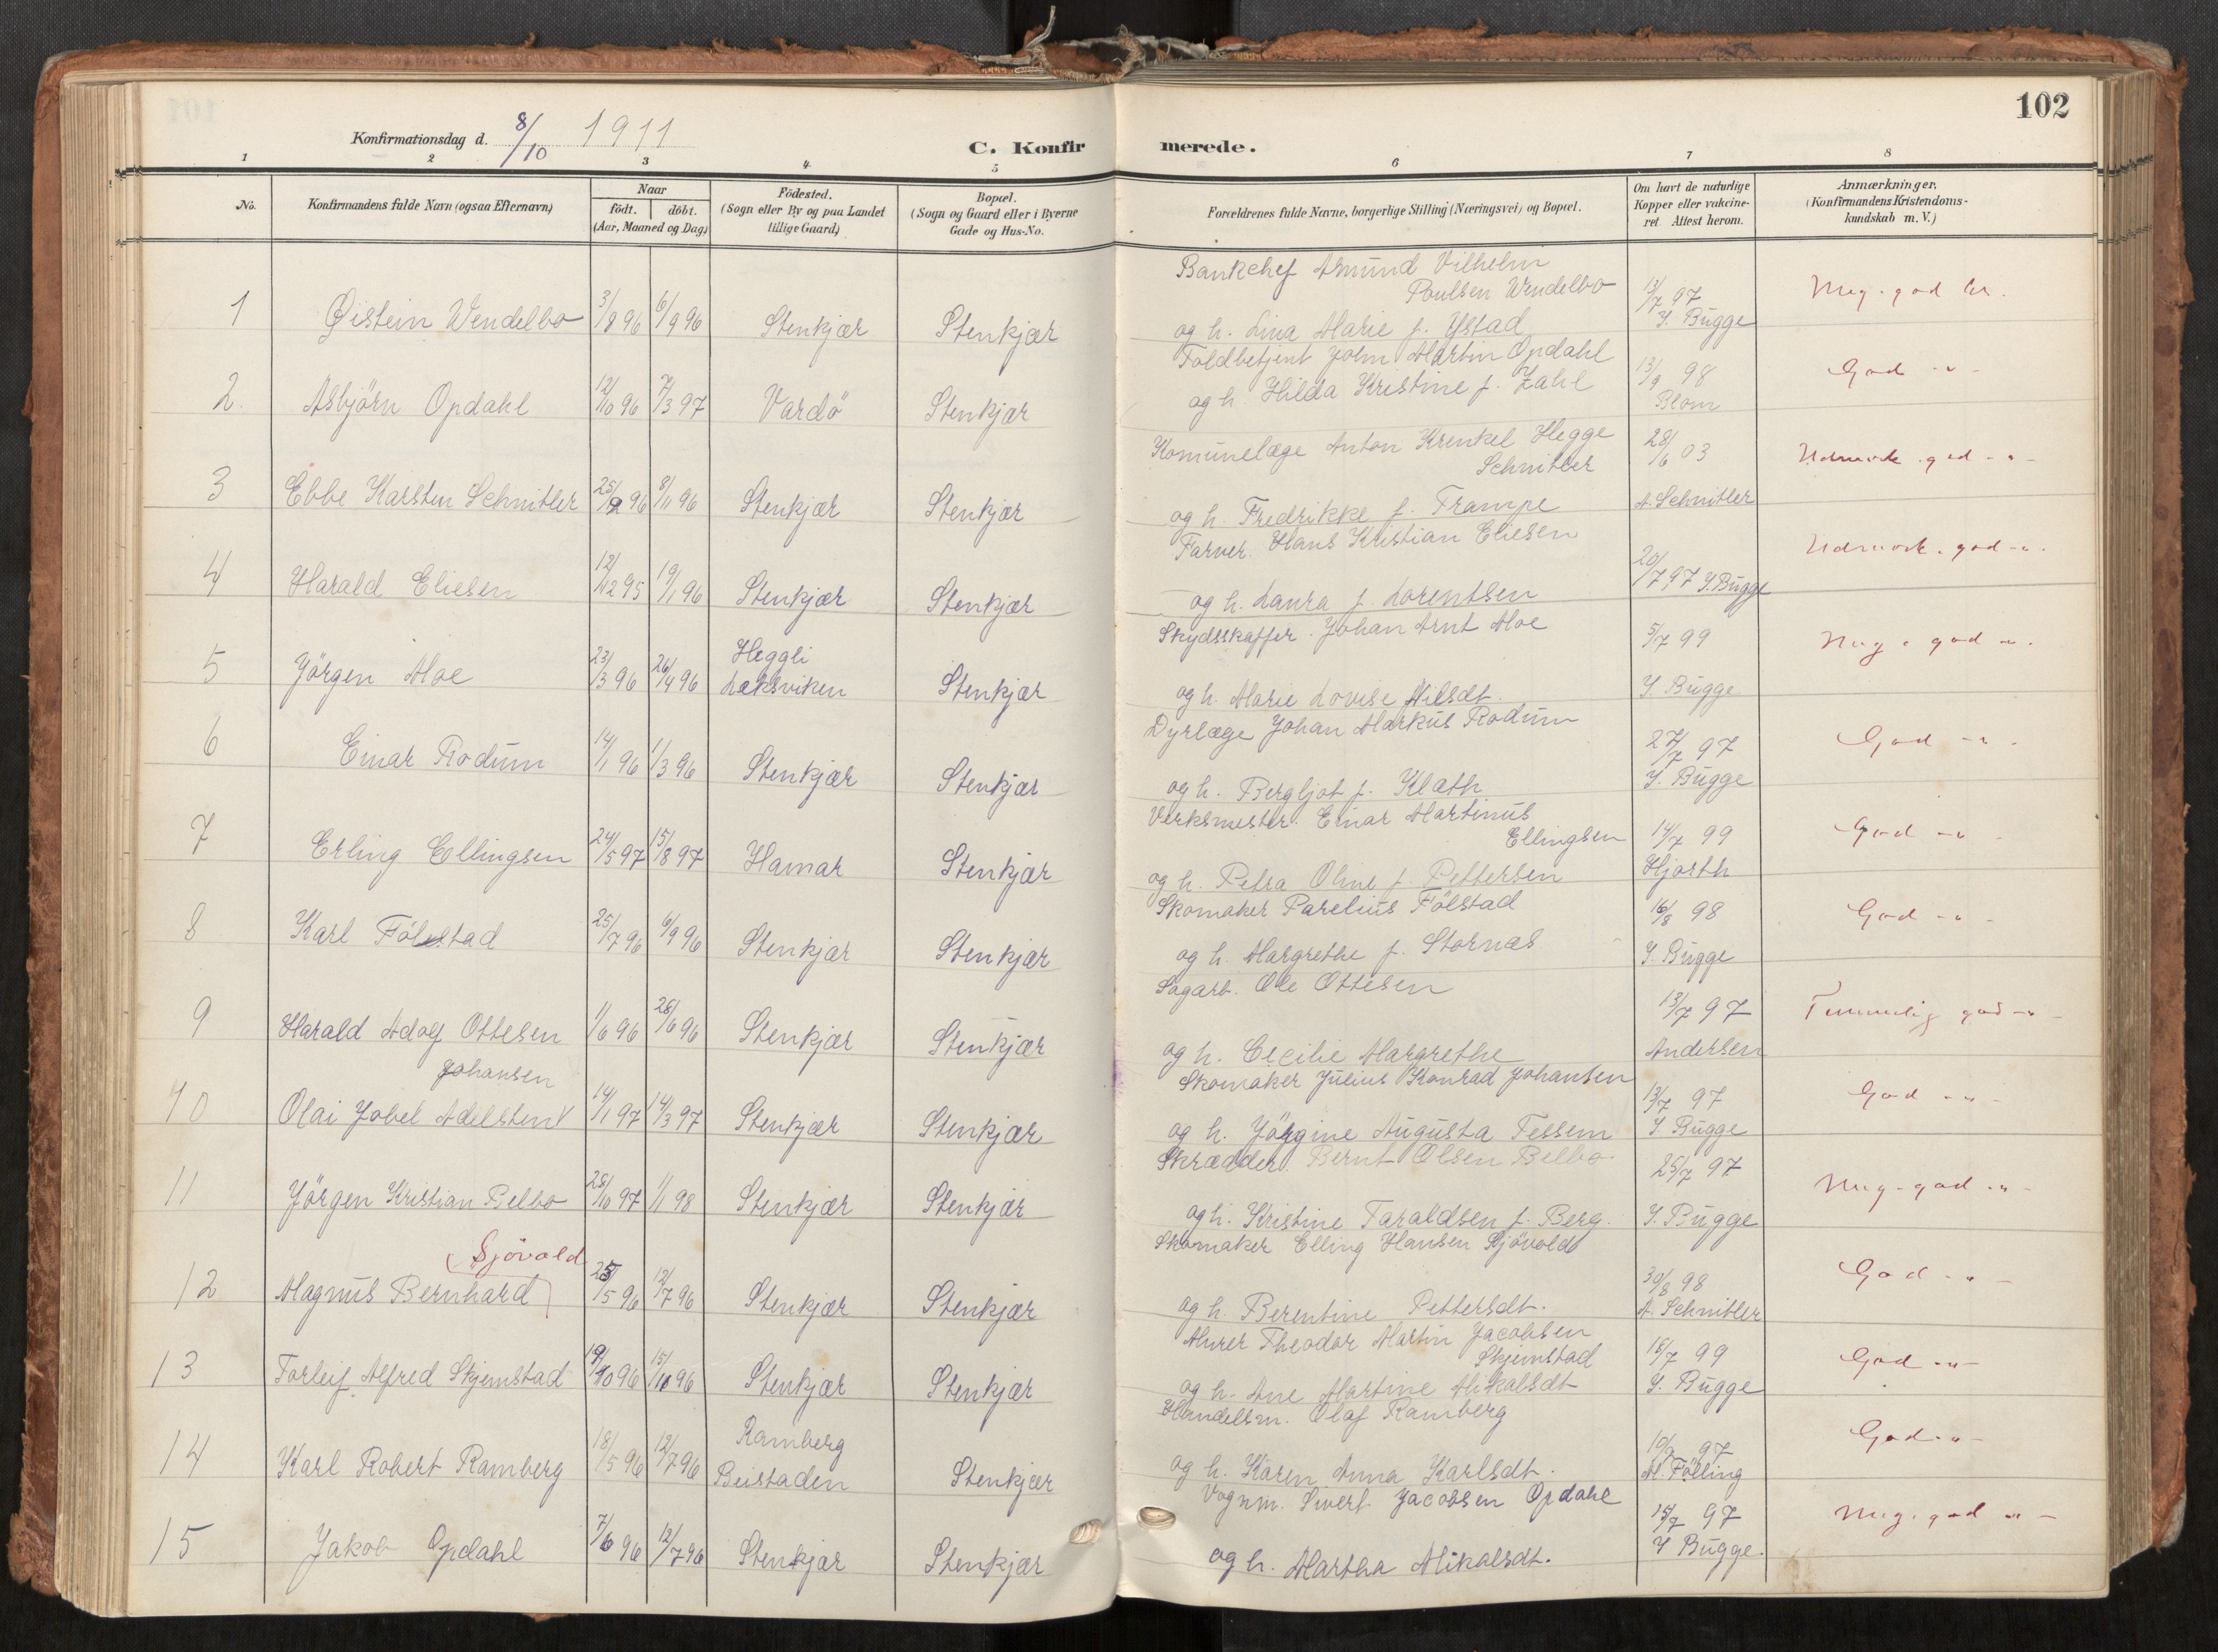 102
Konfirmationsdag d. 8/10 1911
C. Konfirmerede.
1 2 3 4 5 6 7 8
No.
Konfirmandens fulde Navn (ogsaa Efternavn)
Naar
födt. | döbt.
(Aar, Maaned og Dag)
Födested.
(Sogn eller By og paa Landet
tillige Gaard)
Bopæl.
(Sogn og Gaard eller i Byerne
Gade og Hus-No.
Forældrenes fulde Navne, borgerlige Stilling (Næringsvei) og Bopæl.
Om havt de naturlige
Kopper eller vakcine-
ret. Attest herom.
Anmærkninger.
(Konfirmandens Kristendoms-
kundskab m. V.)
Bankchef Asmund Vilhelm
Poulsen Wendelbo
1 Øistein Wendelbo 3/8 96 6/9 96 Stenkjær Stenkjær
og h. Lina Marie f. Ystad
13/7 97
Y. Bugge
Meg. god
Toldbetjent John Martin Opdahl
2. Asbjörn Opdahl 12/10 96 7/3 97 Vardö Stenkjær
og h. Hilda Kristine f. Zahl
13/9 98
Blom
God -"-
Komunelæge Anton Krenkel Hegge
Schnitler
3 Ebbe Karsten Schnitler 25/9 96 8/11 96 Stenkjær Stenkjær
og h. Fredrikke f. Trampe
28/6 03
A. Schnitler
Udmærk. god -"-
Farver. Hans Kristian Eliesen
4 Harald Eliesen 12/12 95 19/1 96 Stenkjær Stenkjær
og h. Laura f. Lorentsen
20/7 97 Y. Bugge
Udmærk. god -"-
Skydsskaffer. Johan Arnt Moe
5 Jörgen Moe 23/3 96 26/4 96 Heggli
Leksviken Stenkjær
og h. Marie Lovise Nilsdt.
5/7 99
Y. Bugge
Meg. god -"-
Dyrlæge Johan Markus Rodum
6 Einar Rodum 14/1 96 1/3 96 Stenkjær Stenkjær
og h. Bergljot f. Klæth
27/7 97
Y. Bugge
God -"-
Verksmester. Einar Martinus
Ellingsen
7 Erling Ellingsen 24/5 97 15/8 97 Hamar Stenkjær
og h. Petra Oline f. Pettersen
14/7 99
Hjorth
God -"-
Skomaker Parelius Fölstad
8 Karl Fölstad 25/7 96 6/9 96 Stenkjær Stenkjær
og h. Margrethe f. Stornæs
16/8 98
Y. Bugge
God -"-
Sagarb. Ole Ottesen
9 Harald Adolf Ottesen 1/6 96 28/6 96 Stenkjær Stenkjær
og h. Cecilie Margrethe
13/7 97
Andersen
Temmelig god -"-
Skomaker Julius Konrad Johansen
Johansen
10 Olai Jobel Adelsten 14/1 97 14/3 97 Stenkjær Stenkjær
og h. Jörgine Augusta Tessem
13/7 97
Y. Bugge
God -"-
Skrædder. Bernt Olsen Belbo
11 Jörgen Kristian Belbo 28/10 97 1/1 98 Stenkjær Stenkjær
og h. Kristine Taraldsen f. Berg.
25/7 97
Y. Bugge
Meg. god -"-
Skomaker Elling Hansen Sjövold
Sjövold
12 Magnus Bernhard 25/5 96 12/7 96 Stenkjær Stenkjær
og h. Berentine Pettersdt.
30/8 98
A. Schnitler
God -"-
Murer Theodor Martin Jacobsen
Skjemstad
13 Torleif Alfred Skjemstad 19/10 96 15/10 96 Stenkjær Stenkjær
og h. Ane Martine Mikalsdt
18/7 99
Y. Bugge
God -"-
Handelsm. Olaf Ramberg
14 Karl Robert Ramberg 18/5 96 12/7 96 Ramberg
Beistaden Stenkjær
og h. Karen Anna Karlsdt.
10/9 97
M. Fölling
God -"-
Vognm. Sivert Jacobsen Opdahl
15 Jakob Opdahl 7/6 96 12/7 96 Stenkjær Stenkjær
og h. Martha Mikalsdt.
15/7 97
Y Bugge.
Meg. god -"-